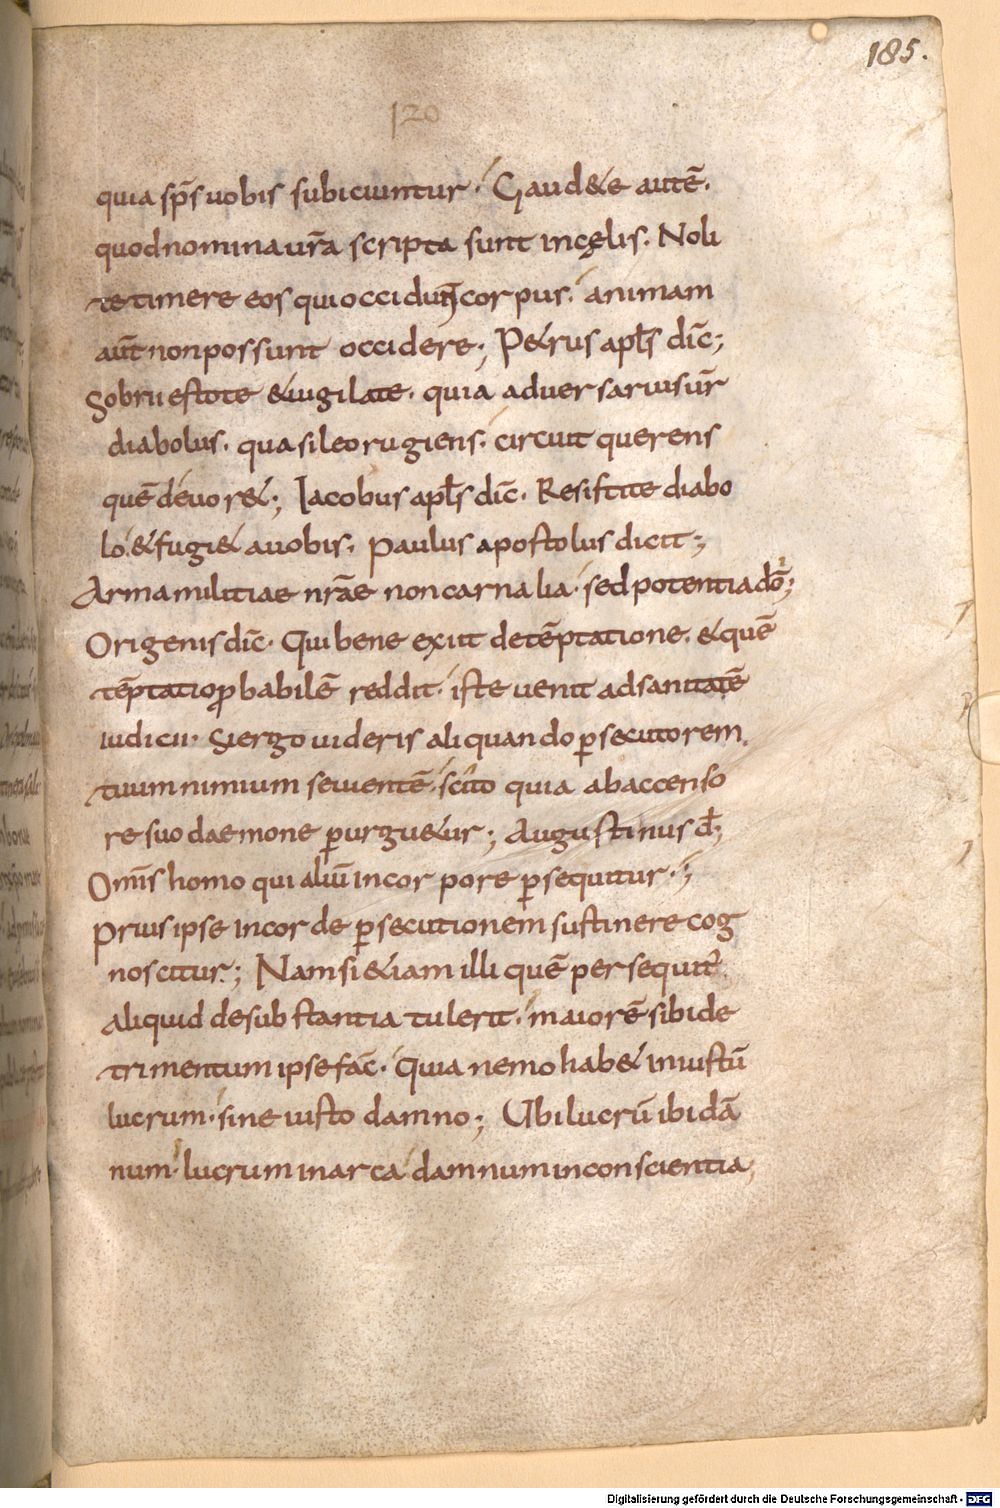 185.
120
quia sp̄s uobis subiciuntur. Gaud&e autē.
quod nomina ur̄a scripta sunt in cęlis. Noli
te timere eos qui occidun̄ corpus. animam
aut̄ non possunt occidere; P&rus apłs dic̄;
Sobrii estote &uigilate. quia aduersarius ur̄
diabolus. quasi leo rugiens. circuit querens
quē deuor&; Iacobus apłs dic̄. Resistite diabo
lo. &fugi& a uobis. Paulus apostolus dicit;
Arma militiae nr̄ae non carnalia. sed potentia dō;
Origenis dic̄. Qui bene exiit de tēptatione. &quē
tēptatio ꝓbabilē reddit. iste uenit ad sanitatē
iudicii. Si ergo uideris aliquando ꝑsecutorem
tuum nimium seuientē. scito quia ab accenso
re suo daemone ꝑurgu&ur; Augustinus d̄;
Om̄s homo qui aliū in corpore ꝑsequitur.;
prius ipse in corde ꝑsecutionem sustinere cog
noscitur; Nam si &iam illi quē persequit̄.
aliquid de substantia tulerit. maiorē sibi de
trimentum ipse fac̄. Quia nemo hab& iniustū
lucrum. sine iusto damno; Ubi lucrū ibi dā
num. lucrum in arca damnum in conscientia;
Digitalisierung gefördert durch die Deutsche Forschungsgemeinschaft - DFG